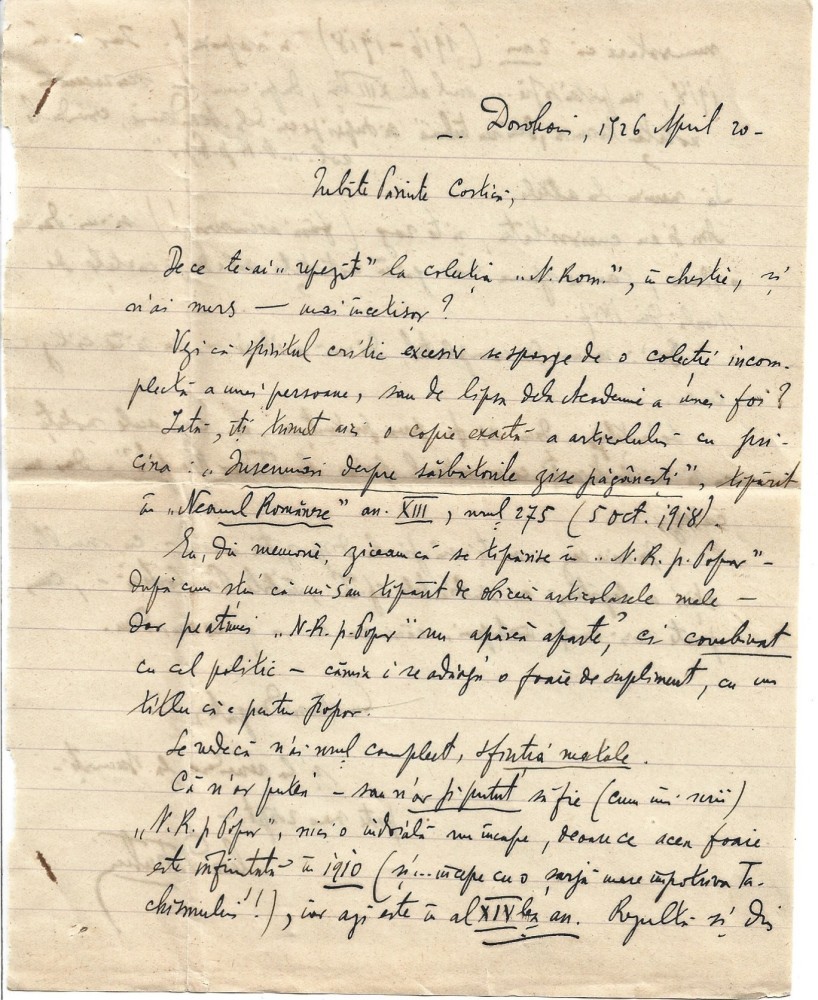 Dorohoi, 1926 April 20 -
Iubite Părinte Costică,
De ce te-ai „repezit" la colecția „N. Rom.", în chestie, și
n'ai mers — mai încetișor?
Vezi că spiritul critic excesiv se sparge de o colecție incom-
plectă a unei persoane, sau de lipsa dela Academie a unei foi?
Iată, îți trimet aici o copie exactă a articolului cu pri-
cina: „Însemnări despre sărbătorile zise păgânești", tipărit
în „Neamul Românesc" an. XIII, nrul 275 (5 Oct. 1918).
Eu, din memorie, ziceam că se tipărise în „N. R. p. Popor" -
după cum știi că mi s'au tipărit de obiceiu articolasele mele —
dar pe atunci „N. R. p. Popor" nu apărea aparte, ci combinat
cu cel politic — căruia i se adăuga o foaie de supliment, cu un
titlu că e pentru popor.
Se vede că n'ai nrul complect, sfinția matale.
Că n'or putea — sau n'or fi putut să fie (cum îmi scrii)
„N. R. p. Popor", nici o îndoială nu încape, deoarece acea foaie
este înființată în 1910 (și... începe cu o șarjă mare împotriva Ta-
chismului!!), iar azi este în al XIV lea an. Rezultă și din